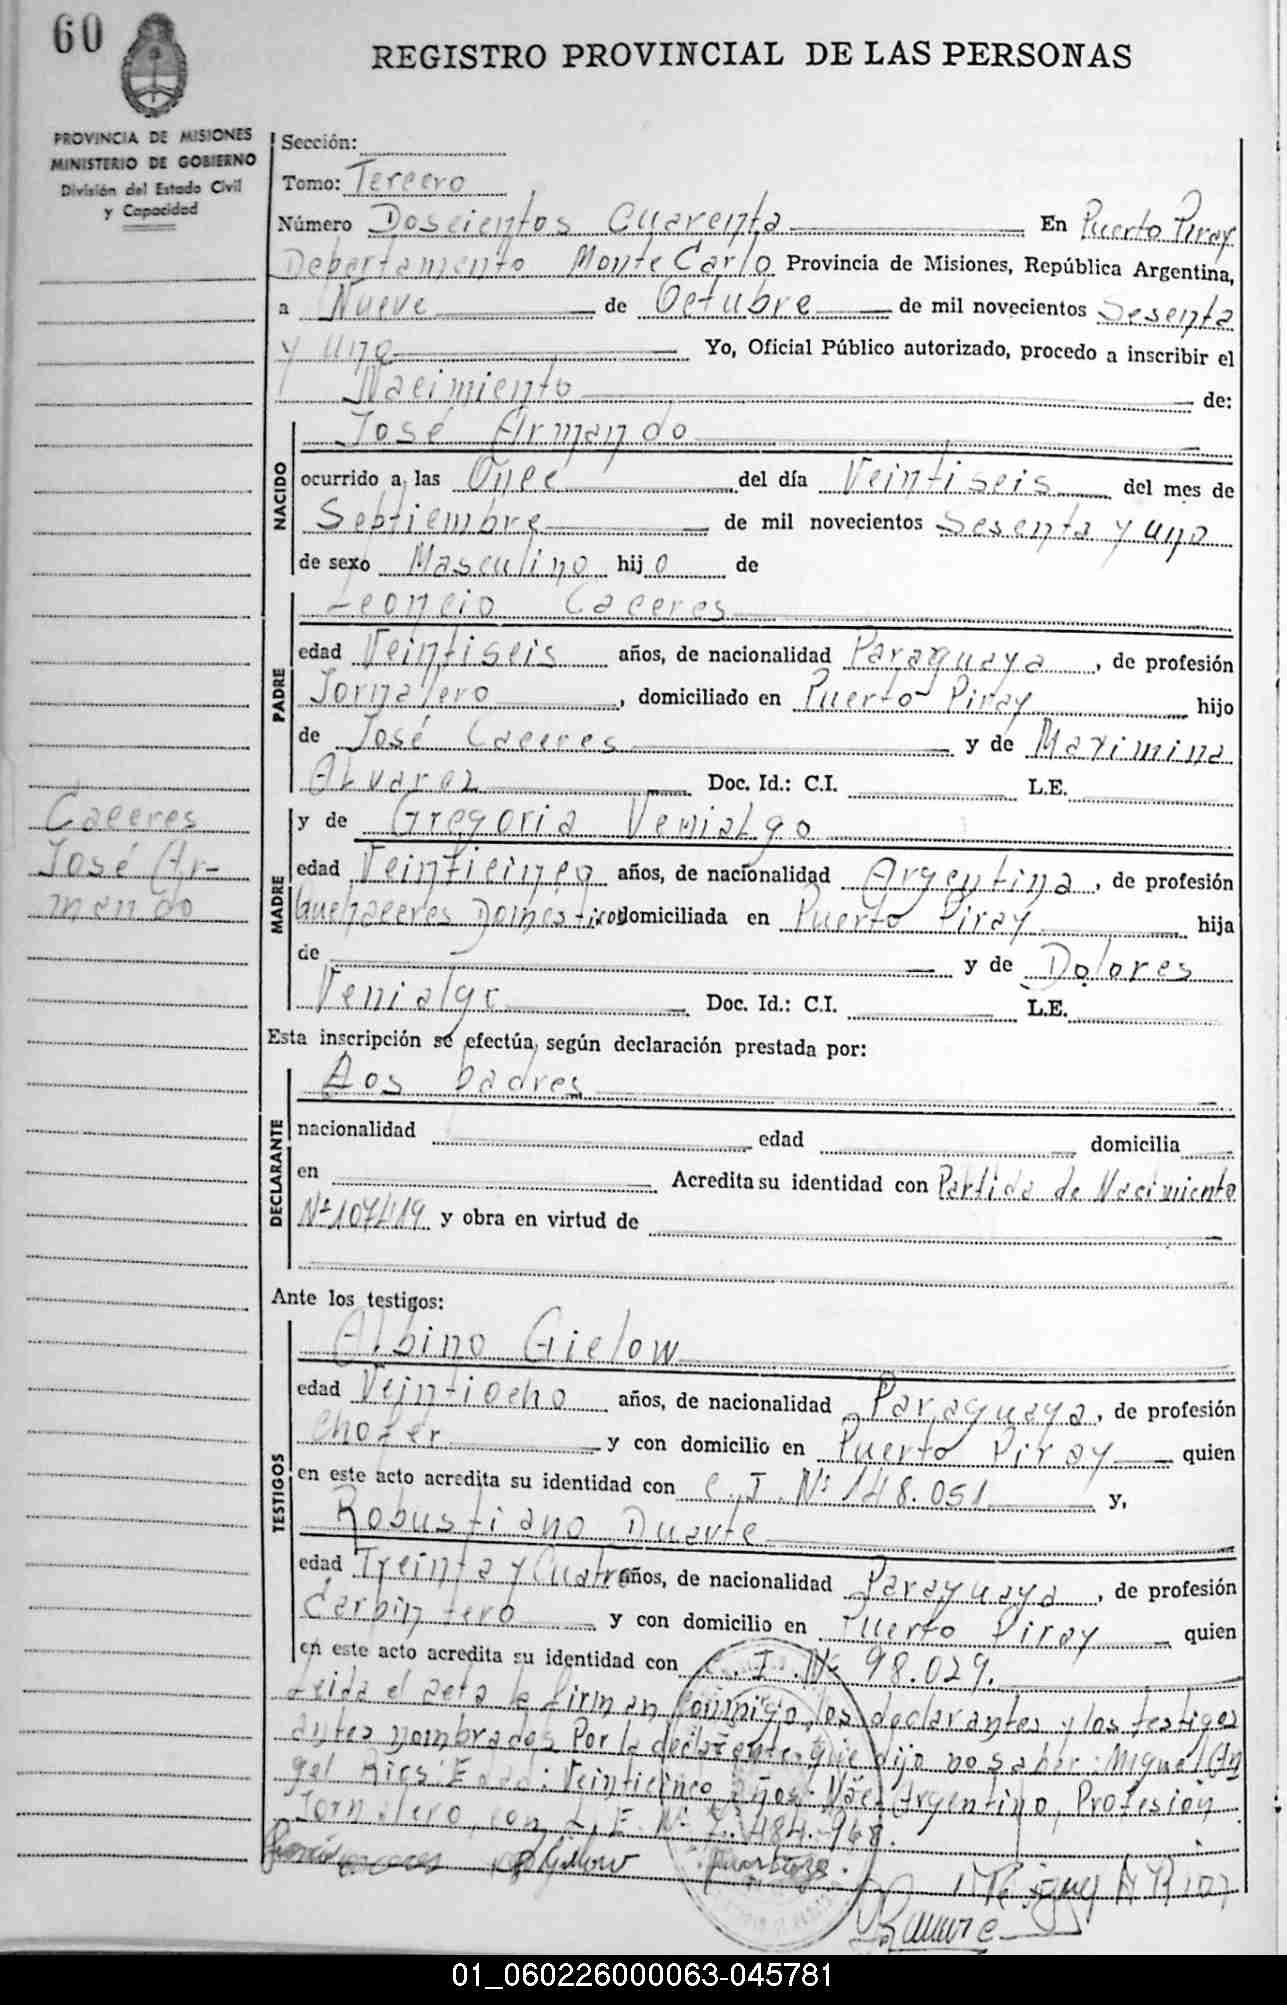 60
REGISTRO PROVINCIAL DE LAS PERSONAS
PROVINCIA DE MISIONES
MINISTERIO DE GOBIERNO
División del Estado Civil
y Capacidad
Sección:
Tomo: Tercero
Número Doscientos Cuarenta En Puerto Piray
Departamento Monte Carlo Provincia de Misiones, República Argentina,
a Nueve de Octubre de mil novecientos Sesenta
y uno Yo, Oficial Público autorizado, procedo a inscribir el
Nacimiento de:
NACIDO
José Armando
ocurrido a las Once del día Veintiseis del mes de
Septiembre de mil novecientos Sesenta y uno
de sexo Masculino hijo de
PADRE
Leoncio Caceres
edad Veintiseis años, de nacionalidad Paraguaya, de profesión
Jornalero, domiciliado en Puerto Piray hijo
de José Caceres y de Maximina
Alvarez Doc. Id.: C.I. L.E.
Caceres
José Ar-
mando
MADRE
y de Gregoria Venialgo
edad Veinticinco años, de nacionalidad Argentina, de profesión
Quehaceres Domésticos domiciliada en Puerto Piray hija
de y de Dolores
Venialgo Doc. Id.: C.I. L.E.
Esta inscripción se efectúa, según declaración prestada por:
DECLARANTE
Los padres
nacionalidad edad domicilia
en Acredita su identidad con Partida de Nacimiento
Nº 107419 y obra en virtud de
Ante los testigos:
TESTIGOS
Albino Gielow
edad Veintiocho años, de nacionalidad Paraguaya, de profesión
Chofer y con domicilio en Puerto Piray quien
en este acto acredita su identidad con C.I. Nº 148.051 y,
Robustiano Duarte
edad Treinta y Cuatro años, de nacionalidad Paraguaya, de profesión
Carpintero y con domicilio en Puerto Piray quien
en este acto acredita su identidad con C.I. Nº 98.029.
Leida el acta la firman conmigo, los declarantes y los testigos
antes nombrados Por la declarante que dijo no saber: Miguel An
gel Rios Edad: Veinticinco años Nac. Argentino, Profesión
Jornalero, con L.E. Nº 7.484.968.
Gielow
01_060226000063-045781